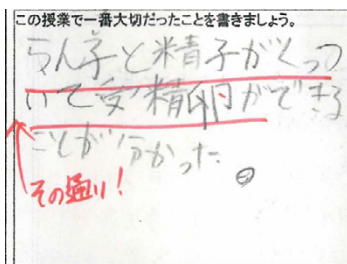 この授業で一番大切だったことを書きましょう。
らん子と精子がくっつ
いて受精卵ができる
ことが分かった
その通り!